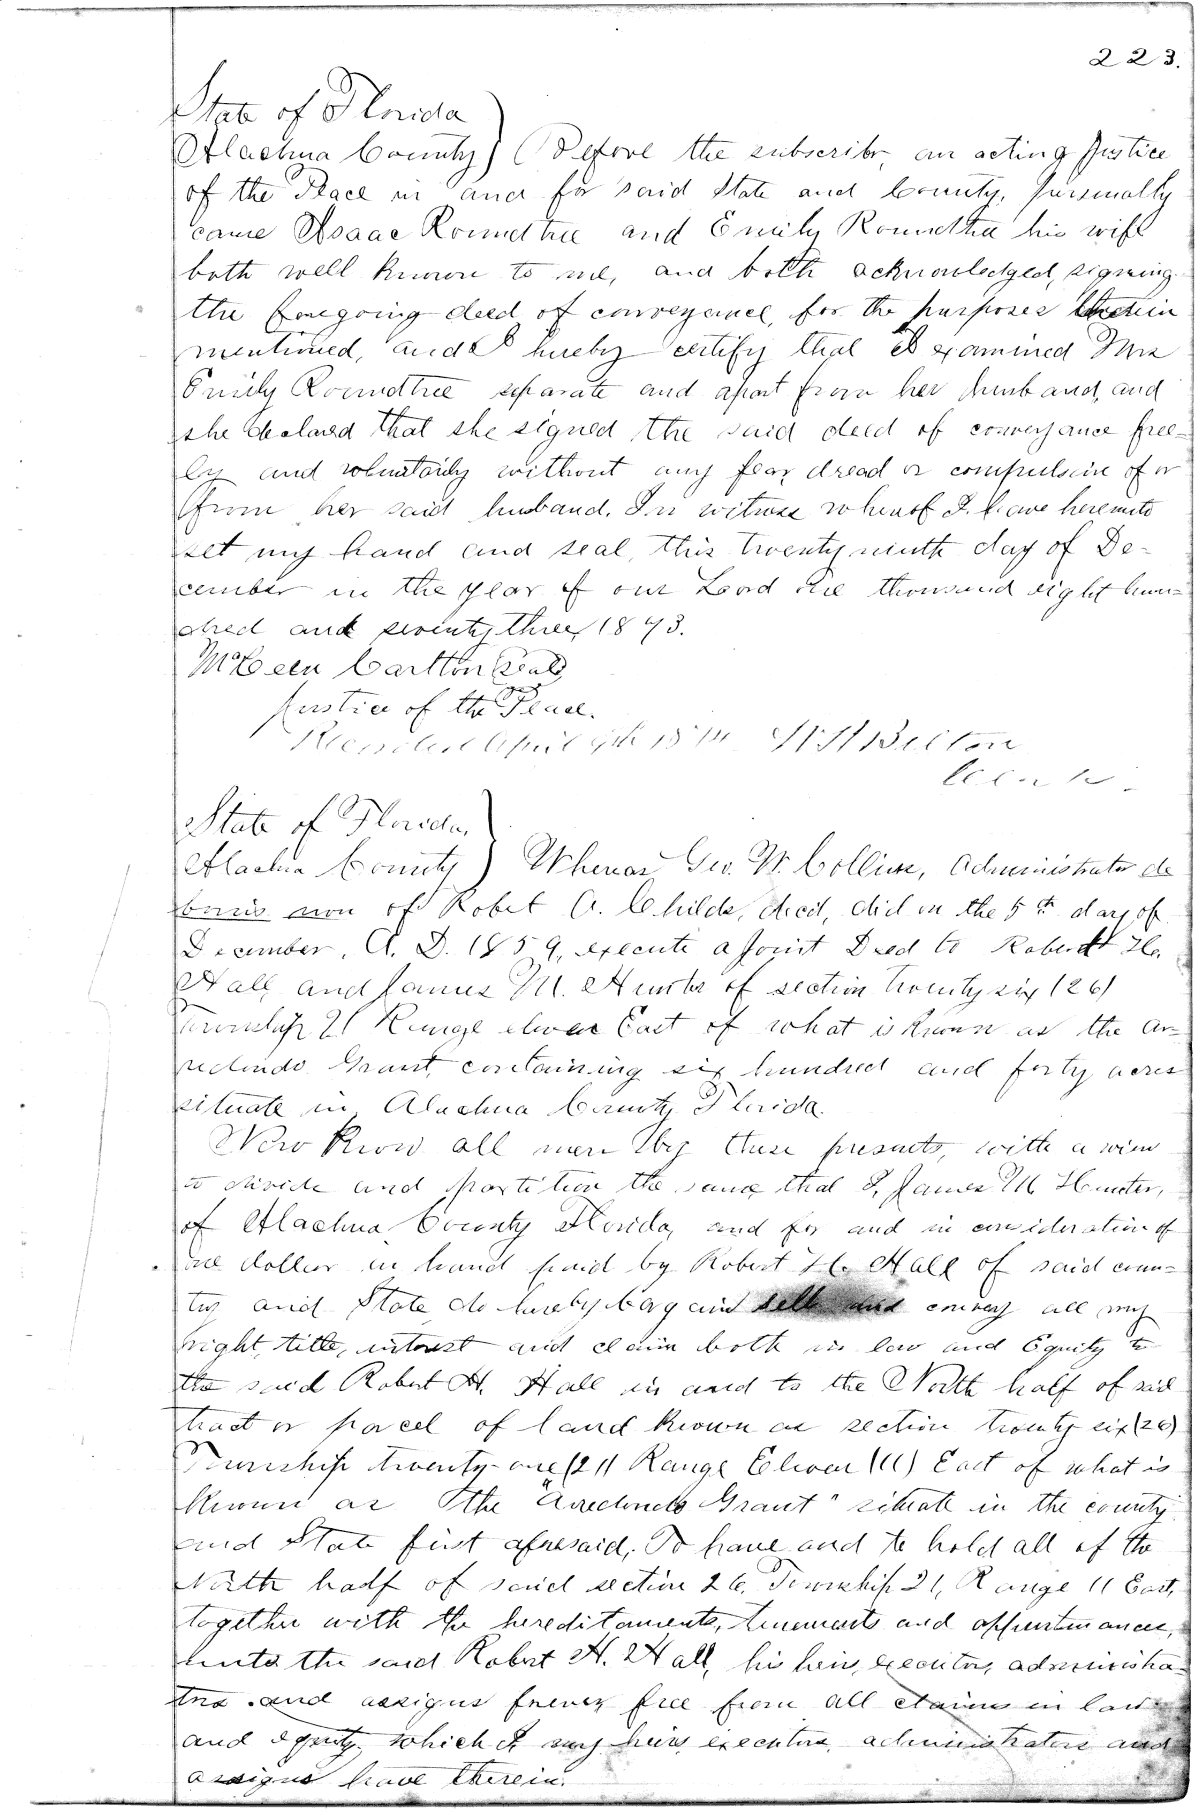 223.
State of Florida
Alachua County) Before the subscriber, an acting Justice
of the Peace in and for said State and County, personally
came Isaac Roundtree and Emily Roundtree his wife
both well known to me, and both acknowledged, signing
the foregoing deed of conveyance, for the purposes therein
mentioned, and I hereby certify that I examined Mrs
Emily Roundtree separate and apart from her husband, and
she declared that she signed the said deed of conveyance free=
ly and voluntarily without any fear, dread or compulsion of or
from her said husband. In witness whereof I have hereunto
set my hand and seal, this twenty ninth day of De=
cember in the year of our Lord one thousand eight hun=
dred and seventy three, 1873.
McCeen Carlton (seal)
Justice of the Peace.
Recorded April 9th 1874 Belton
Clerk.
State of Florida,
Alachua County) Whereas Geo. W. Collins, Administrator de
bonis non of Robet A. Childs, decd, did on the 5th day of
December, A. D. 1859, execute a joint Deed to Robert H.
Hall, and James M. Hunter of section twenty six (26)
Township 21 Range eleven East of what is known as the Ar=
redondo Grant, containing six hundred and forty acres
situate in Alachua County Florida.
Now Know all men by these presents, with a view
to divide and partition the same, that I, James M Hunter,
of Alachua County Florida, and for and in consideration of
one dollar in hand paid by Robert H. Hall of said coun=
ty and State do hereby bargain sell and convey all my
right, title, interest and claim both in law and Equity to
the said Robert H. Hall in and to the North half of said
tract or parcel of land known as section twenty six (26)
Township twenty-one (21) Range Eleven (11) East of what is
known as the "Arredondo Grant" situate in the county
and State first aforesaid; To have and to hold all of the
North half of said section 26, Township 21, Range 11 East,
together with the hereditaments, tenements and appurtenances,
unto the said Robert H. Hall, his heirs, executors, administra=
tors and assigns forever, free from all claims in law
and equity, which I my heirs, executors, administrators and
assigns have therein.